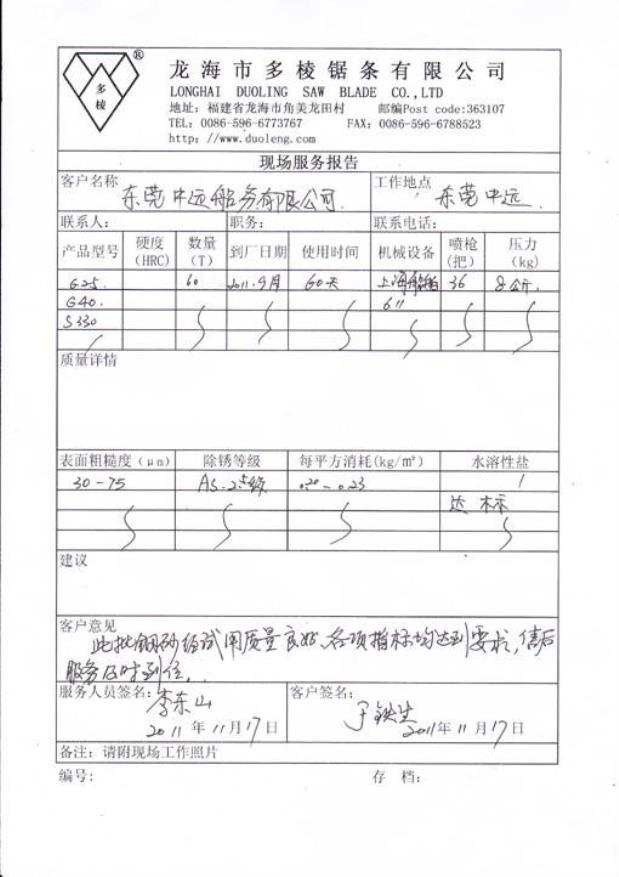 多棱 ®
龙海市多棱锯条有限公司
LONGHAI DUOLING SAW BLADE CO.,LTD
地址：福建省龙海市角美龙田村 邮编Post code:363107
TEL: 0086-596-6773767 FAX: 0086-596-6788523
http://www.duoleng.com
现场服务报告
客户名称 东莞中远船务有限公司. 工作地点 东莞中远.
联系人: 职务: 联系电话:
产品型号 硬度(HRC) 数量(T) 到厂日期 使用时间 机械设备 喷枪(把) 压力(kg)
G25. 60 2011.9月 60天 上海船舶 36 8公斤.
G40. 6"
S330
质量详情
表面粗糙度（μm） 除锈等级 每平方消耗(kg/m²) 水溶性盐
30-75 AS-2.5级 0.20-0.23
达标
建议
客户意见
此批钢砂经试用质量良好、各项指标均达到要求,售后
服务及时到位.
服务人员签名: 李东山 客户签名:
2011年11月17日 2011年11月17日
备注: 请附现场工作照片
编号: 存 档: